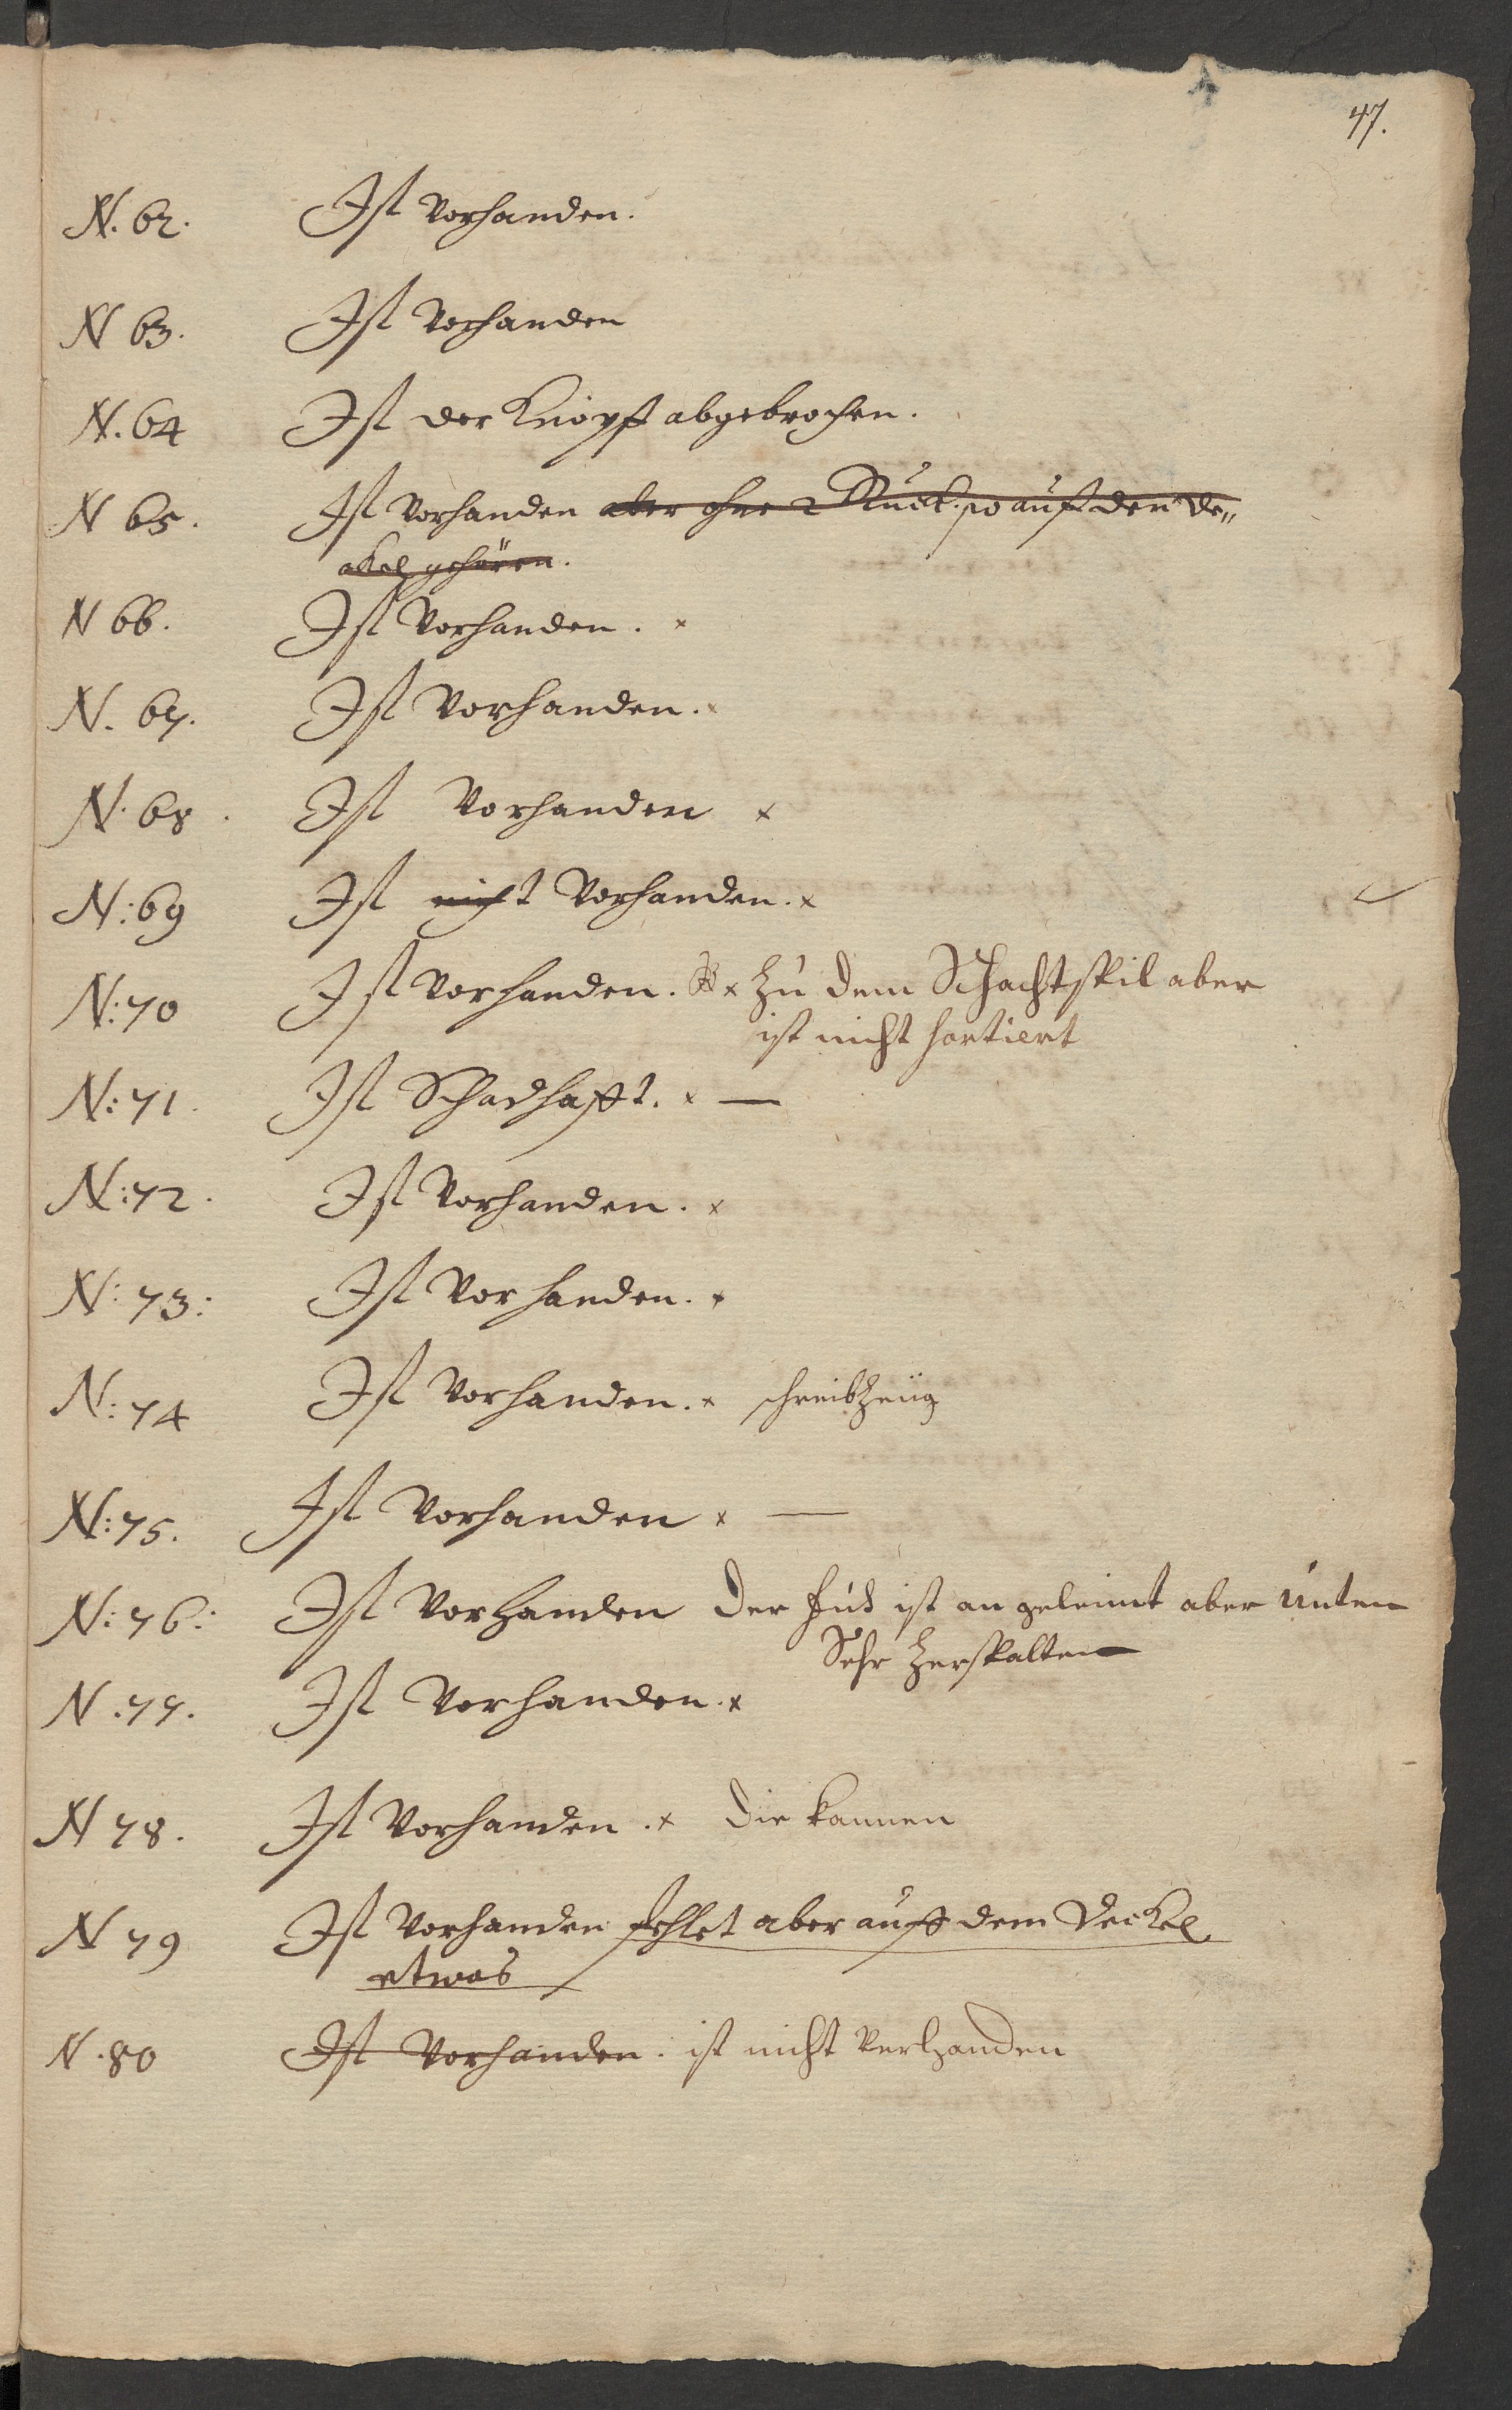 47.
N. 62. Ist vorhanden.
N 63. Ist vorhanden
N. 64 Ist der Knöpff abgebrochen.
N 65. Ist vorhanden aber ohne 2 Stück so auf den De„
ckel gehören.
N 66. Ist vorhanden. x
N. 67. Ist vorhanden. x
N. 68. Ist vorhanden x
N: 69 Ist nicht vorhanden. x
N: 70 Ist vorhanden. x zu dem Schachtspil aber
ist nicht sortiert
N: 71. Ist Schadhafft. x —
N: 72. Ist vorhanden. x
N: 73: Ist vorhanden. x
N: 74 Ist vorhanden. x schreibzeüg
N: 75. Ist vorhanden x —
N: 76: Ist vorhanden Der fus ist an geleimt aber unten
Sehr zerspalten
N. 77. Ist vorhanden. x
N 78. Ist vorhanden. x die kannen
N 79 Ist vorhanden fehlet aber auff dem Deckel
etwas
N. 80 Ist vorhanden. ist nicht verhanden